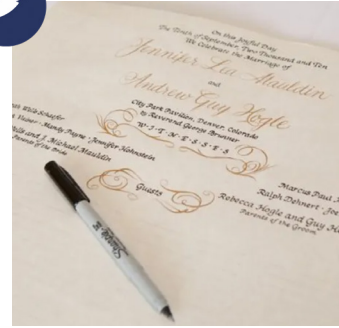 On this Joyful Day
The Tenth of September, Two Thousand and Ten
We Celebrate the Marriage of
Jennifer Lea Mauldin
and
Andrew Guy Hogle
City Park Pavilion, Denver, Colorado
by Reverend George Brunner
W·I·T·N·E·S·S·E·S
Schaefer
Mandy Payne · Jennifer Hohnstein
and J. Michael Mauldin
Parents of the Bride
Guests
Marcia Paul
Ralph Dehnert · Joe
Rebecca Hogle and Guy H
Parents of the Groom
Sharpie